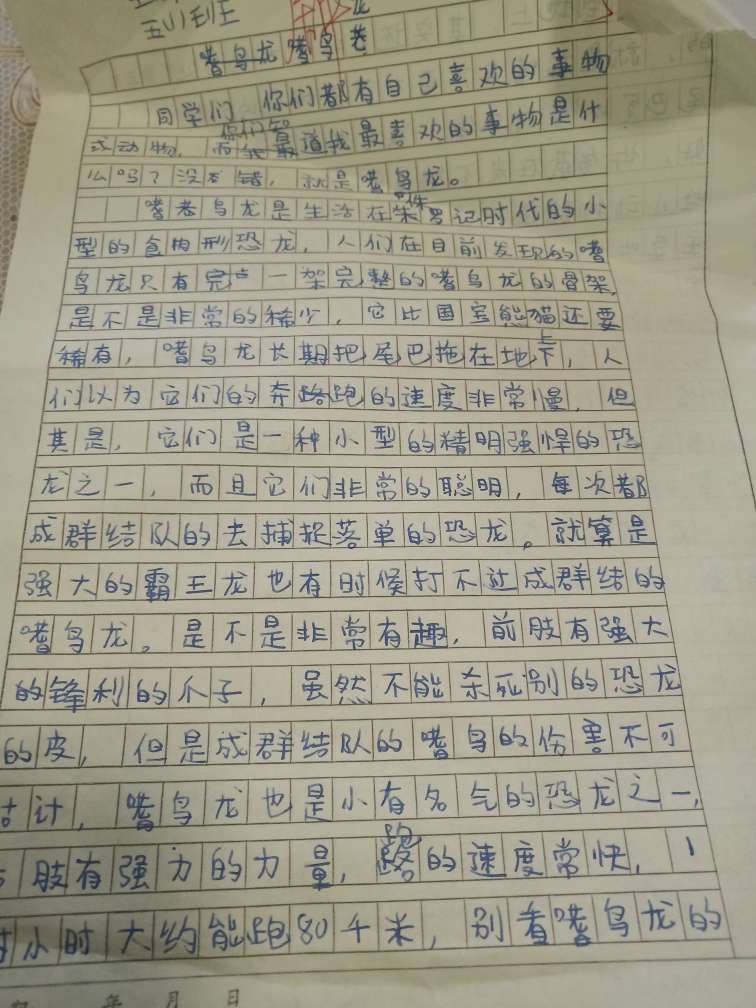 嗜鸟龙嗜鸟龙
同学们，你们都有自己喜欢的事物
或动物，而你们知道我最喜欢的事物是什
么吗？没有错，就是嗜鸟龙。
嗜鸟龙是生活在侏罗记时代的小
型的食肉形恐龙，人们在目前发现的嗜
鸟龙只有一架完整的嗜鸟龙的骨架，
是不是非常的稀少，它比国宝熊猫还要
稀有，嗜鸟龙长期把尾巴拖在地上，人
们以为它们的奔跑的速度非常慢，但
其是，它们是一种小型的精明强悍的恐
龙之一，而且它们非常的聪明，每次都
成群结队的去捕捉落单的恐龙。就算是
强大的霸王龙也有时候打不过成群结的
嗜鸟龙。是不是非常有趣，前肢有强大
的锋利的爪子，虽然不能杀死别的恐龙
的皮，但是成群结队的嗜鸟的伤害不可
估计，嗜鸟龙也是小有名气的恐龙之一，
肢有强力的力量，跑的速度常快，
小时大约能跑80千米，别看嗜鸟龙的
年 月 日